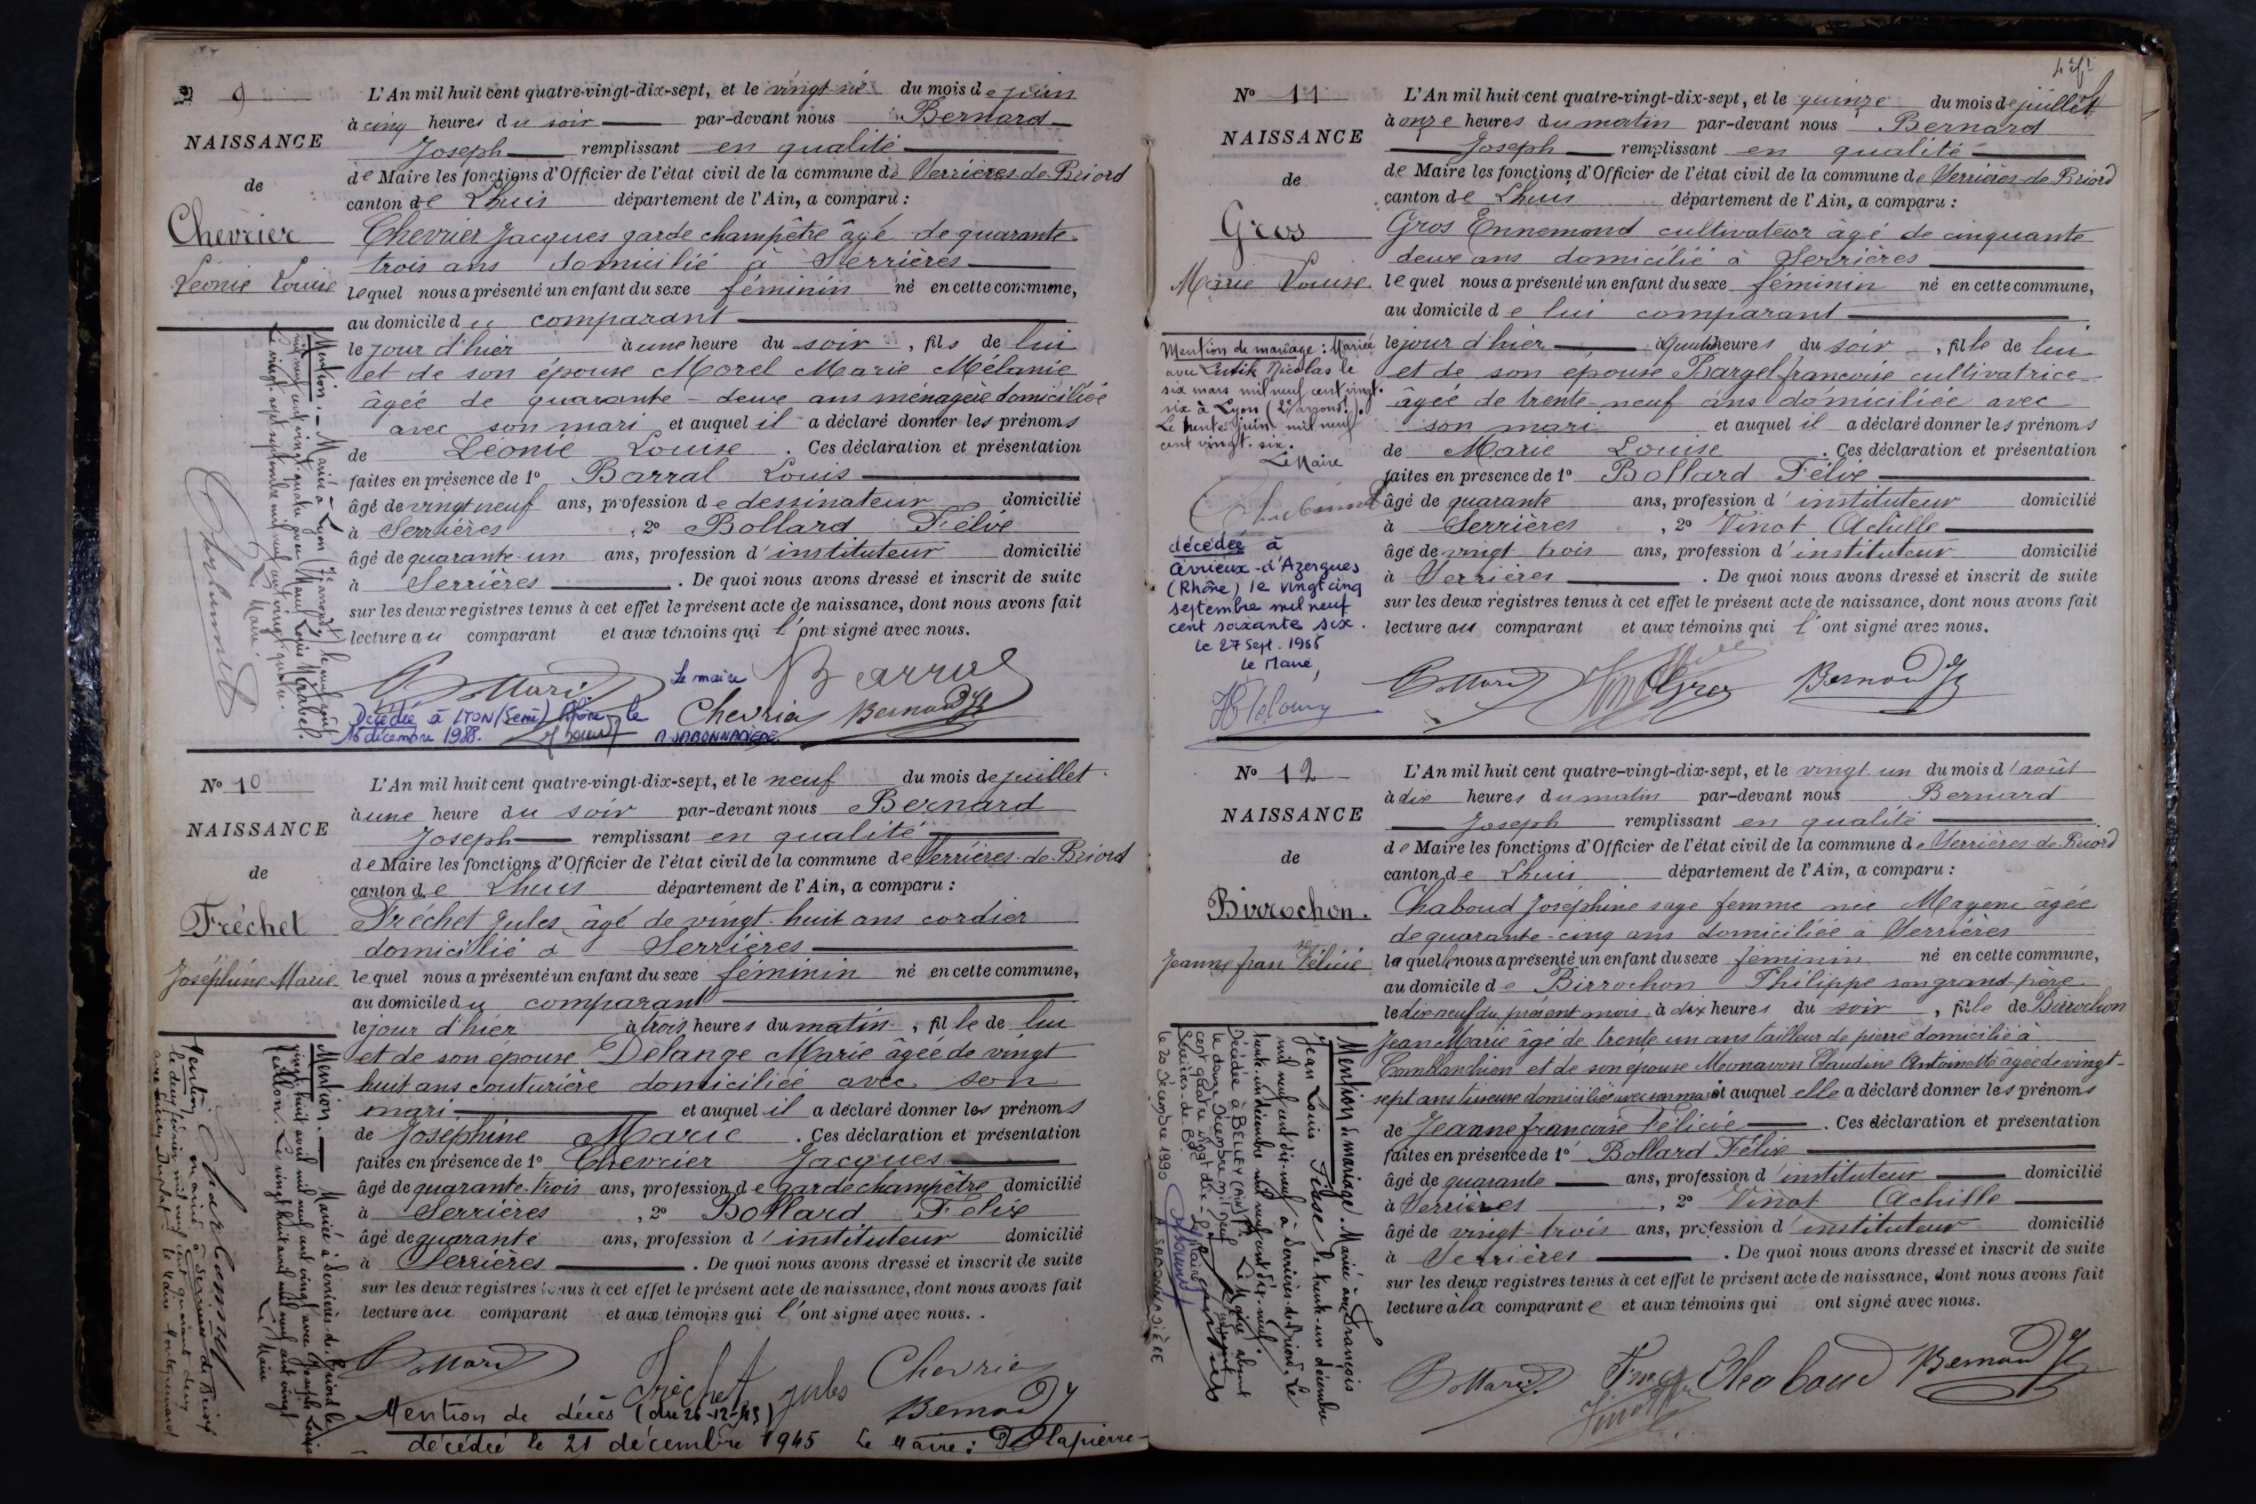 9
L'An mil huit cent quatre-vingt-dix-sept, et le vingt six du mois de juin
à cinq heures du soir par-devant nous Bernard
NAISSANCE
Joseph remplissant en qualité
de
de Maire les fonctions d'Officier de l'état civil de la commune de Serrières de Briord
canton de Lhuis département de l'Ain, a comparu :
Chevrier
Chevrier Jacques garde champêtre âgé de quarante
trois ans domicilié à Serrières
Léonie Louise
lequel nous a présenté un enfant du sexe féminin né en cette commune,
au domicile du comparant
le jour d'hier à une heure du soir, fils de lui
et de son épouse Morel Marie Mélanie
âgée de quarante-deux ans ménagère domiciliée
avec son mari et auquel il a déclaré donner les prénoms
de Léonie Louise. Ces déclaration et présentation
faites en présence de 1º Barral Louis
âgé de vingt neuf ans, profession de dessinateur domicilié
à Serrières, 2º Bollard Félix
âgé de quarante-un ans, profession d'instituteur domicilié
à Serrières. De quoi nous avons dressé et inscrit de suite
sur les deux registres tenus à cet effet le présent acte de naissance, dont nous avons fait
lecture au comparant et aux témoins qui l'ont signé avec nous.
Mention. - Marié à Lyon
mil neuf cent vingt-quatre avec Paul Louis
Le vingt sept septembre mil neuf cent vingt quatre.
Le Maire.
Bollard Barral
Le maire
Chevrier Bernard J
Décédée à LYON (8em) Rhône le
16 décembre 1988.
Nº 10
L'An mil huit cent quatre-vingt-dix-sept, et le neuf du mois de juillet
à une heure du soir par-devant nous Bernard
NAISSANCE
Joseph remplissant en qualité
de
de Maire les fonctions d'Officier de l'état civil de la commune de Serrières-de-Briord
canton de Lhuis département de l'Ain, a comparu :
Fréchet
Fréchet Jules âgé de vingt-huit ans cordier
domicilié à Serrières
Joséphine Marie
lequel nous a présenté un enfant du sexe féminin né en cette commune,
au domicile du comparant
le jour d'hier à trois heures du matin, fille de lui
et de son épouse Delange Marie âgée de vingt
huit ans couturière domiciliée avec son
mari et auquel il a déclaré donner les prénoms
de Joséphine Marie. Ces déclaration et présentation
faites en présence de 1º Chevrier Jacques
âgé de quarante-trois ans, profession de garde champêtre domicilié
à Serrières, 2º Bollard Félix
âgé de quarante ans, profession d'instituteur domicilié
à Serrières. De quoi nous avons dressé et inscrit de suite
sur les deux registres tenus à cet effet le présent acte de naissance, dont nous avons fait
lecture au comparant et aux témoins qui l'ont signé avec nous.
Mention. - Mariée à Serrières-de-Briord le
vingt huit avril mil neuf cent vingt avec Joseph Louis
Le vingt huit avril mil neuf cent vingt
Le Maire
Mention mariée à Serrières de Briord
le deux février mil neuf cent quarante deux
Le Maire
Bollard Fréchet Jules Chevrier
Bernard J
Mention de décès (du 26-12-45)
décédée le 21 décembre 1945 Le Maire :
Nº 11
L'An mil huit cent quatre-vingt-dix-sept, et le quinze du mois de juillet
à onze heures du matin par-devant nous Bernard
NAISSANCE
Joseph remplissant en qualité
de
de Maire les fonctions d'Officier de l'état civil de la commune de Serrières-de-Briord
canton de Lhuis département de l'Ain, a comparu :
Gros
Gros Ennemond cultivateur âgé de cinquante
deux ans domicilié à Serrières
Marie Louise
lequel nous a présenté un enfant du sexe féminin né en cette commune,
au domicile de lui comparant
le jour d'hier à quatre heures du soir, fille de lui
et de son épouse Barget françoise cultivatrice
âgée de trente-neuf ans domiciliée avec
son mari et auquel il a déclaré donner les prénoms
de Marie Louise. Ces déclaration et présentation
faites en présence de 1º Bollard Félix
âgé de quarante ans, profession d'instituteur domicilié
à Serrières, 2º Vinot Achille
âgé de vingt trois ans, profession d'instituteur domicilié
à Serrières. De quoi nous avons dressé et inscrit de suite
sur les deux registres tenus à cet effet le présent acte de naissance, dont nous avons fait
lecture au comparant et aux témoins qui l'ont signé avec nous.
Mention de mariage : Mariée
avec Nicolas le
six mars mil neuf cent vingt-
six à Lyon
Le trente juin mil neuf
cent vingt-six.
Le Maire
décédée à
Civrieux-d'Azergues
(Rhône) le vingt cinq
septembre mil neuf
cent soixante six.
le 27 Sept. 1966
le Maire,
Bollard Vinot Gros Bernard J
Nº 12
L'An mil huit cent quatre-vingt-dix-sept, et le vingt un du mois d'août
à dix heures du matin par-devant nous Bernard
NAISSANCE
Joseph remplissant en qualité
de
de Maire les fonctions d'Officier de l'état civil de la commune de Serrières-de-Briord
canton de Lhuis département de l'Ain, a comparu :
Birrochon.
Chaboud Joséphine sage femme née Mayeni âgée
de quarante-cinq ans domiciliée à Serrières
Jeanne fran se Félicie
laquelle nous a présenté un enfant du sexe féminin né en cette commune,
au domicile de Birrochon Philippe son grand-père
le dix neuf du présent mois à dix heures du soir, fille de Birrochon
Jean Marie âgé de trente un ans tailleur de pierre domicilié à
Comblanchien et de son épouse Meonavon Claudine Antoinette âgée de vingt-
sept ans tisseuse domiciliée avec son mari et auquel elle a déclaré donner les prénoms
de Jeanne françoise Félicie. Ces déclaration et présentation
faites en présence de 1º Bollard Félix
âgé de quarante ans, profession d'instituteur domicilié
à Serrières, 2º Vinot Achille
âgé de vingt-trois ans, profession d'instituteur domicilié
à Serrières. De quoi nous avons dressé et inscrit de suite
sur les deux registres tenus à cet effet le présent acte de naissance, dont nous avons fait
lecture à la comparante et aux témoins qui ont signé avec nous.
Mention de mariage. Mariée avec François
Jean Louis Tisse le trente-un décembre
mil neuf cent dix-neuf à Serrières-de-Briord, le
trente-un décembre mil neuf cent dix-neuf.
Décédée à BELLEY (Ain)
le douze décembre mil neuf
cent quatre vingt dix
Serrières-de-Bd
le 20 Décembre 1990
Bollard Chaboud Bernard J
Vinot